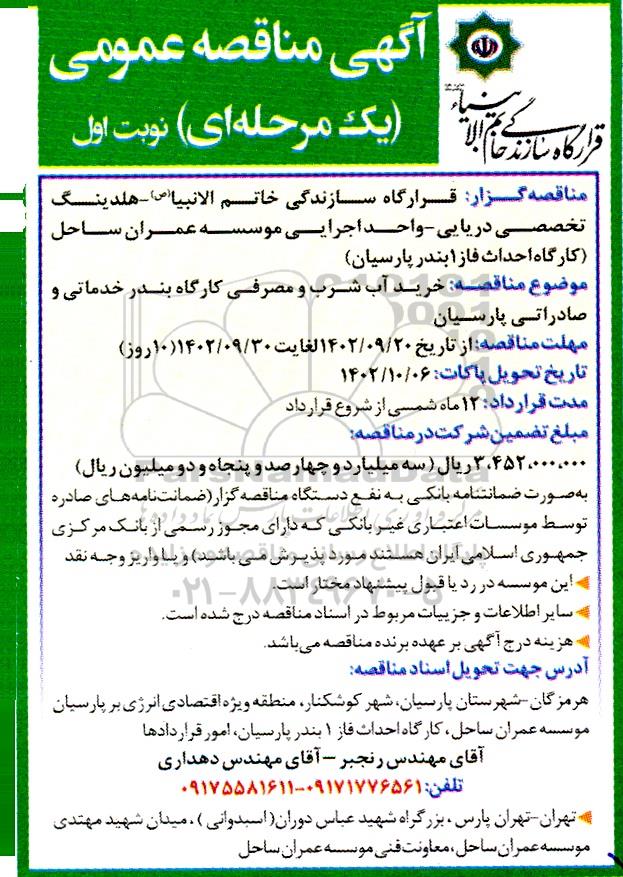 آگهی مناقصه عمومی
(یک مرحله‌ای) نوبت اول
قرارگاه سازندگی خاتم الانبیاء
مناقصه گزار: قرارگاه سازندگی خاتم الانبیا(ص)-هلدینگ
تخصصی دریایی-واحد اجرایی موسسه عمران ساحل
(کارگاه احداث فاز ۱ بندر پارسیان)
موضوع مناقصه: خرید آب شرب و مصرفی کارگاه بندر خدماتی و
صادراتی پارسیان
مهلت مناقصه: از تاریخ ۱۴۰۲/۰۹/۲۰ لغایت ۱۴۰۲/۰۹/۳۰ (۱۰ روز)
تاریخ تحویل پاکات: ۱۴۰۲/۱۰/۰۶
مدت قرارداد: ۱۲ ماه شمسی از شروع قرارداد
مبلغ تضمین شرکت در مناقصه:
۳،۴۵۲،۰۰۰،۰۰۰ ریال (سه میلیارد و چهارصد و پنجاه و دو میلیون ریال)
به‌صورت ضمانتنامه بانکی به نفع دستگاه مناقصه گزار (ضمانت‌نامه‌های صادره
توسط موسسات اعتباری غیربانکی که دارای مجوز رسمی از بانک مرکزی
جمهوری اسلامی ایران هستند مورد پذیرش می باشید) و یا واریز وجه نقد
این موسسه در رد یا قبول پیشنهاد مختار است.
سایر اطلاعات و جزییات مربوط در اسناد مناقصه درج شده است.
هزینه درج آگهی بر عهده برنده مناقصه می‌باشد.
آدرس جهت تحویل اسناد مناقصه:
هرمزگان-شهرستان پارسیان، شهر کوشکنار، منطقه ویژه اقتصادی انرژی بر پارسیان
موسسه عمران ساحل، کارگاه احداث فاز ۱ بندر پارسیان، امور قراردادها
آقای مهندس رنجبر – آقای مهندس دهداری
تلفن: ۰۹۱۷۱۷۷۶۵۶۱-۰۹۱۷۵۵۸۱۶۱۱
تهران-تهران پارس، بزرگراه شهید عباس دوران (اسبدوانی)، میدان شهید مهتدی
موسسه عمران ساحل، معاونت فنی موسسه عمران ساحل
ParsNamadData
۰۲۱-۸۸۳۴۹۶۷۰-۵